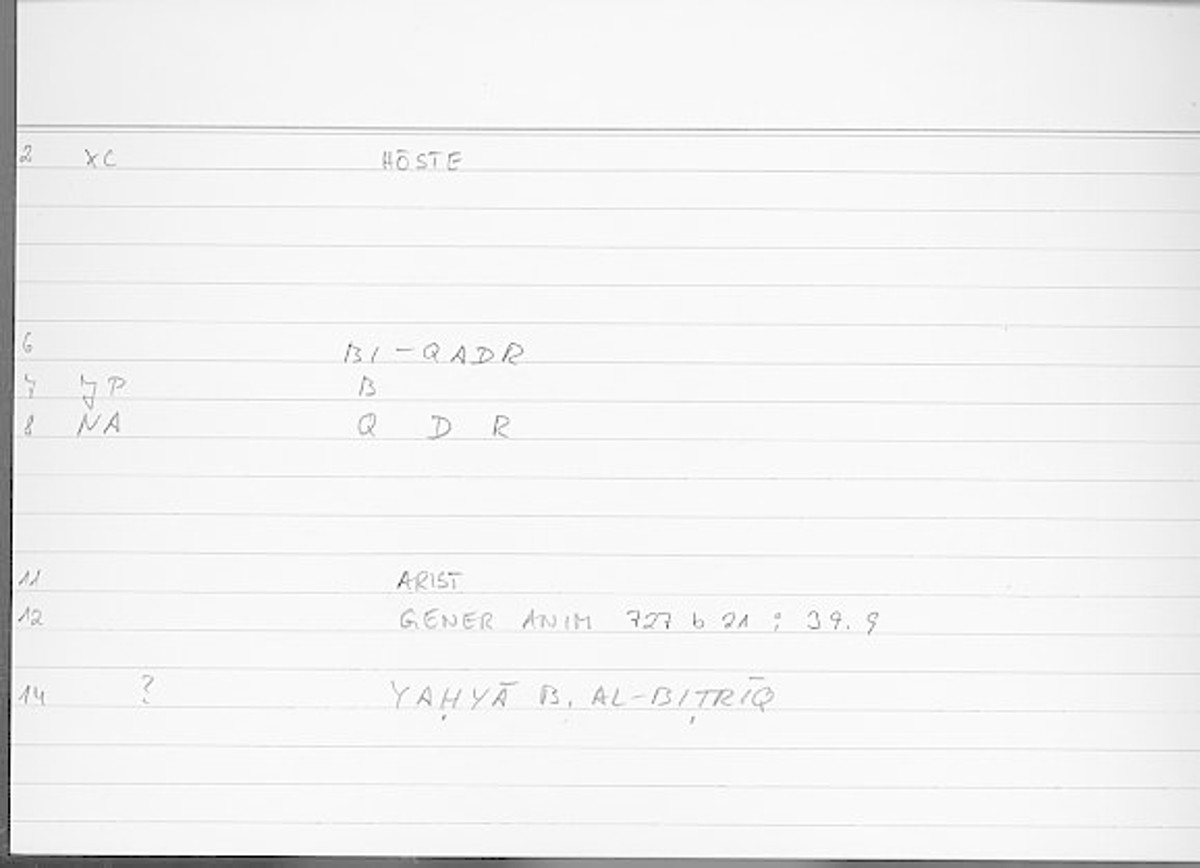 2 XC HŌSTE
6 BI-QADR
7 JP B
8 NA Q D R
11 ARIST
12 GENER ANIM 727 b 21 ; 39.9
14 ? YAḤYĀ B. AL-BIṬRĪQ